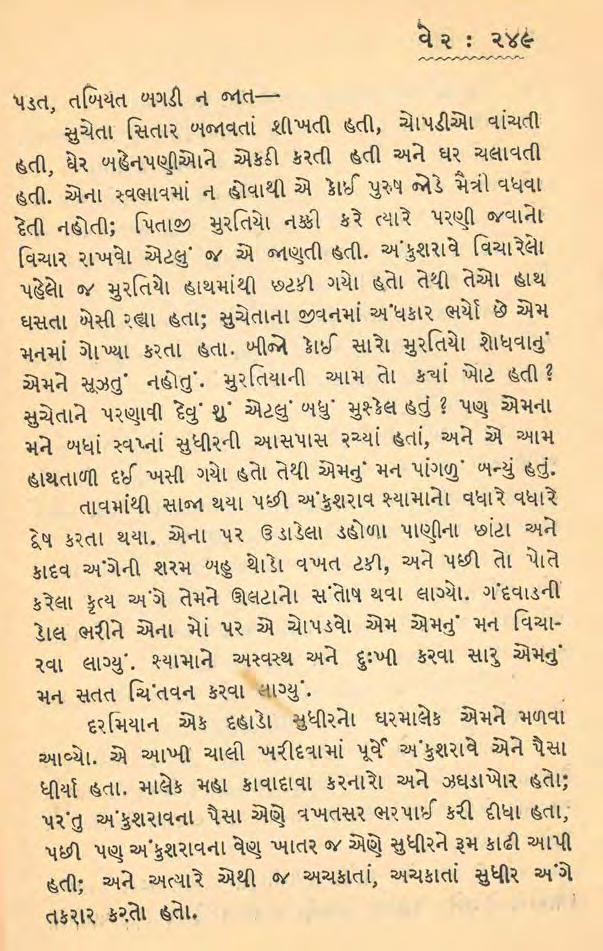 વે ર : ૨૪૯
પડત, તબિયત બગડી ન જાત—
સુચેતા સિતાર બજાવતાં શીખતી હતી, ચોપડીઓ વાંચતી
હતી, ઘેર બહેનપણીઓને એકઠી કરતી હતી અને ઘર ચલાવતી
હતી. એના સ્વભાવમાં ન હોવાથી એ કોઈ પુરુષ જોડે મૈત્રી વધવા
દેતી નહોતી; પિતાજી મુરતિયો નક્કી કરે ત્યારે પરણી જવાનો
વિચાર રાખવો એટલું જ એ જાણતી હતી. અંકુશરાવે વિચારેલો
પહેલો જ મુરતિયો હાથમાંથી છટકી ગયો હતો તેથી તેઓ હાથ
ઘસતા બેસી રહ્યા હતા; સુચેતાના જીવનમાં અંધકાર ભર્યો છે એમ
મનમાં ગોખ્યા કરતા હતા. બીજો કોઈ સારો મુરતિયો શોધવાનું
એમને સૂઝતું નહોતું. મુરતિયાની આમ તો કયાં ખોટ હતી ?
સુચેતાને પરણાવી દેવું શું એટલું બધું મુશ્કેલ હતું ? પણ એમના
મને બધાં સ્વપ્નાં સુધીરની આસપાસ રચ્યાં હતાં, અને એ આમ
હાથતાળી દઈ ખસી ગયો હતો તેથી એમનું મન પાંગળું બન્યું હતું.
તાવમાંથી સાજા થયા પછી અંકુશરાવ શ્યામાનો વધારે વધારે
દ્વેષ કરતા થયા. એના પર ઉડાડેલા ડહોળા પાણીના છાંટા અને
કાદવ અંગેની શરમ બહુ થોડો વખત ટકી, અને પછી તો પોતે
કરેલા કૃત્ય અંગે તેમને ઊલટાનો સંતોષ થવા લાગ્યો. ગંદવાડની
ડોલ ભરીને એના મોં પર એ ચોપડવો એમ એમનું મન વિચા-
રવા લાગ્યું. શ્યામાને અસ્વસ્થ અને દુઃખી કરવા સારુ એમનું
મન સતત ચિંતવન કરવા લાગ્યું.
દરમિયાન એક દહાડો સુધીરનો ઘરમાલેક એમને મળવા
આવ્યો. એ આખી ચાલી ખરીદવામાં પૂર્વે અંકુશરાવે એને પૈસા
ધીર્યા હતા. માલેક મહા કાવાદાવા કરનારો અને ઝઘડાખોર હતો;
પરંતુ અંકુશરાવના પૈસા એણે વખતસર ભરપાઈ કરી દીધા હતા,
પછી પણ અંકુશરાવના વેણ ખાતર જ એણે સુધીરને રૂમ કાઢી આપી
હતી; અને અત્યારે એથી જ અચકાતાં, અચકાતાં સુધીર અંગે
તકરાર કરતો હતો.